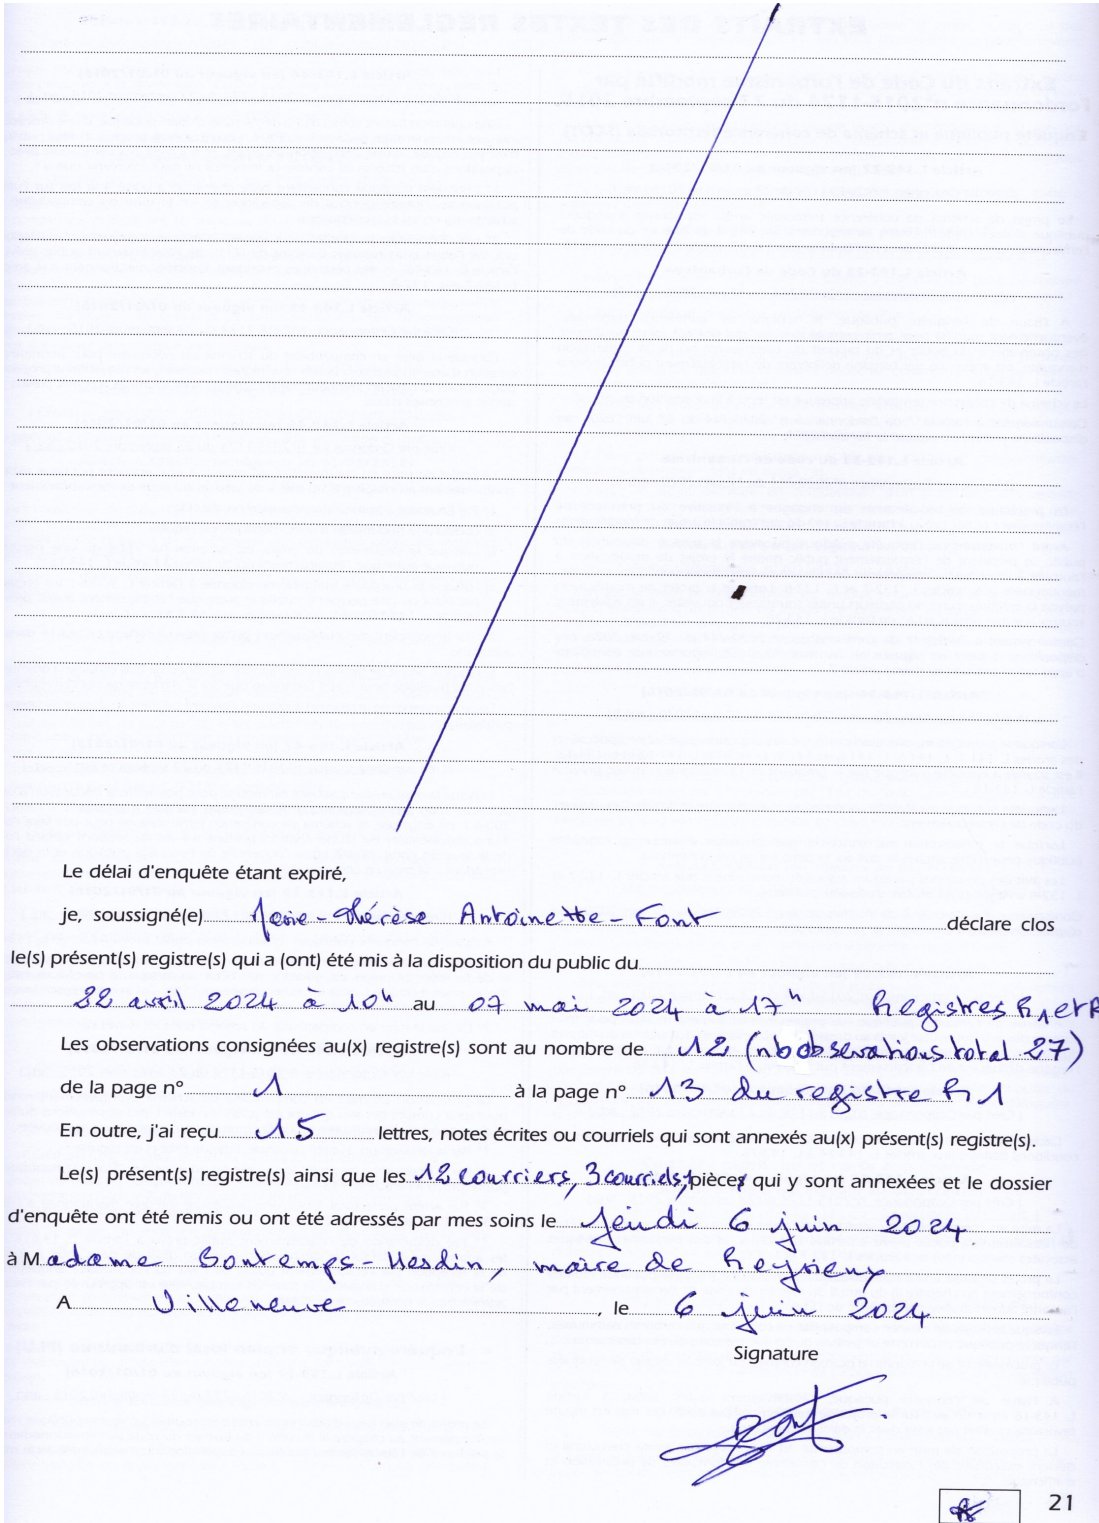 Le délai d'enquête étant expiré,
je, soussigné(e) Marie-Thérèse Antoinette-Font déclare clos
le(s) présent(s) registre(s) qui a (ont) été mis à la disposition du public du
22 avril 2024 à 10h au 07 mai 2024 à 17h Registres R1 et R
Les observations consignées au(x) registre(s) sont au nombre de 12 (nb observations total 27)
de la page n° 1 à la page n° 13 du registre R1
En outre, j'ai reçu 15 lettres, notes écrites ou courriels qui sont annexés au(x) présent(s) registre(s).
Le(s) présent(s) registre(s) ainsi que les 12 courriers, 3 courriels, pièces qui y sont annexées et le dossier
d'enquête ont été remis ou ont été adressés par mes soins le jeudi 6 juin 2024
à Madame Bontemps-Hesdin, maire de Reyrieux
A Villeneuve, le 6 juin 2024
Signature
Font
21